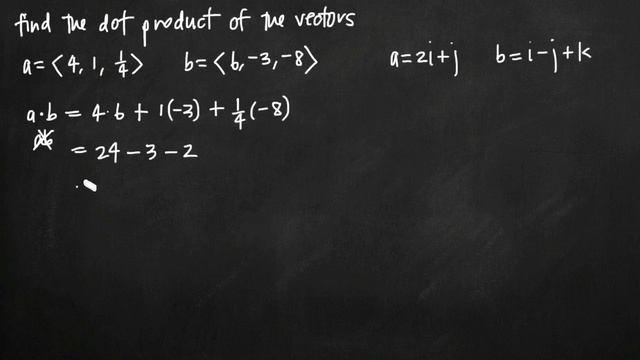 find the dot product of the vectors
a = ⟨4, 1, 1/4⟩ b = ⟨6, -3, -8⟩ a = 2i + j b = i - j + k
a · b = 4 · 6 + 1(-3) + 1/4(-8)
= 24 - 3 - 2